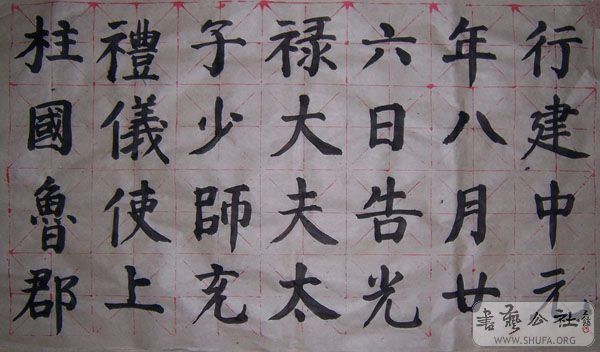 行建中元
年八月廿
六日告光
禄大夫太
子少師充
禮儀使上
柱國魯郡
書藝公社
WWW.SHUFA.ORG